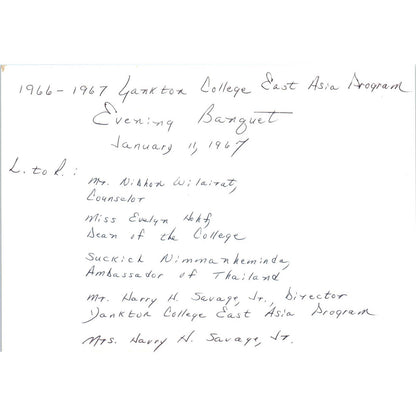 1966-1967 Yankton College East Asia Program
Evening Banquet
January 11, 1967
L. to R.:
Mr. Nibhon Wilairat,
Counselor
Miss Evelyn Hohf,
Dean of the College
Suckich Nimmanheminda,
Ambassador of Thailand
Mr. Harry H. Savage, Jr., Director
Yankton College East Asia Program
Mrs. Harry H. Savage, Jr.